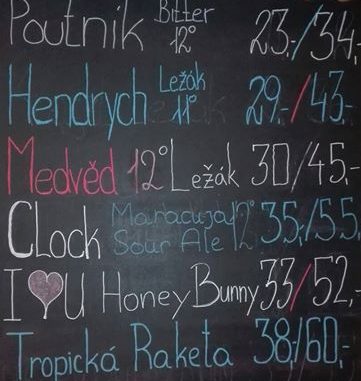 Poutník Bitter 12° 23,-/34,-
Hendrych Ležák 11° 29,-/43,-
Medvěd 12° Ležák 30/45,-
Clock Maracuja Sour Ale 12° 35,-/55,-
I ♥ U Honey Bunny 33/52,-
Tropická Raketa 38,-/60,-